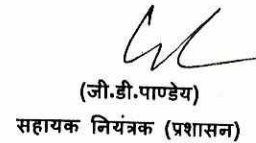 (जी.डी.पाण्डेय)
सहायक नियंत्रक (प्रशासन)